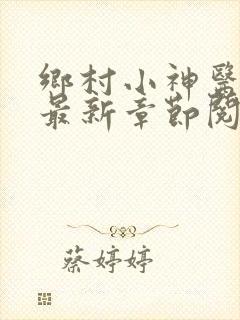 鄉村小神醫
最新章節閱
蔡婷婷